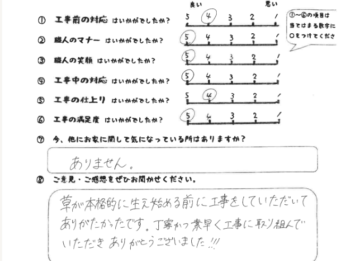 良い 悪い
① 工事前の対応 はいかがでしたか? 5 4 3 2 1
② 職人のマナー はいかがでしたか? 5 4 3 2 1
③ 職人の笑顔 はいかがでしたか? 5 4 3 2 1
④ 工事中の対応 はいかがでしたか? 5 4 3 2 1
⑤ 工事の仕上り はいかがでしたか? 5 4 3 2 1
⑥ 工事の満足度 はいかがでしたか? 5 4 3 2 1
①~⑥の項目は
当てはまる数字に
○をつけてくださ
⑦ 今、他にお家に関して気になっている所はありますか?
ありません。
⑧ ご意見・ご感想をぜひお聞かせください。
草が本格的に生え始める前に工事をしていただいて
ありがたかったです。丁寧かつ素早く工事に取り組んで
いただきありがとうございました!!!